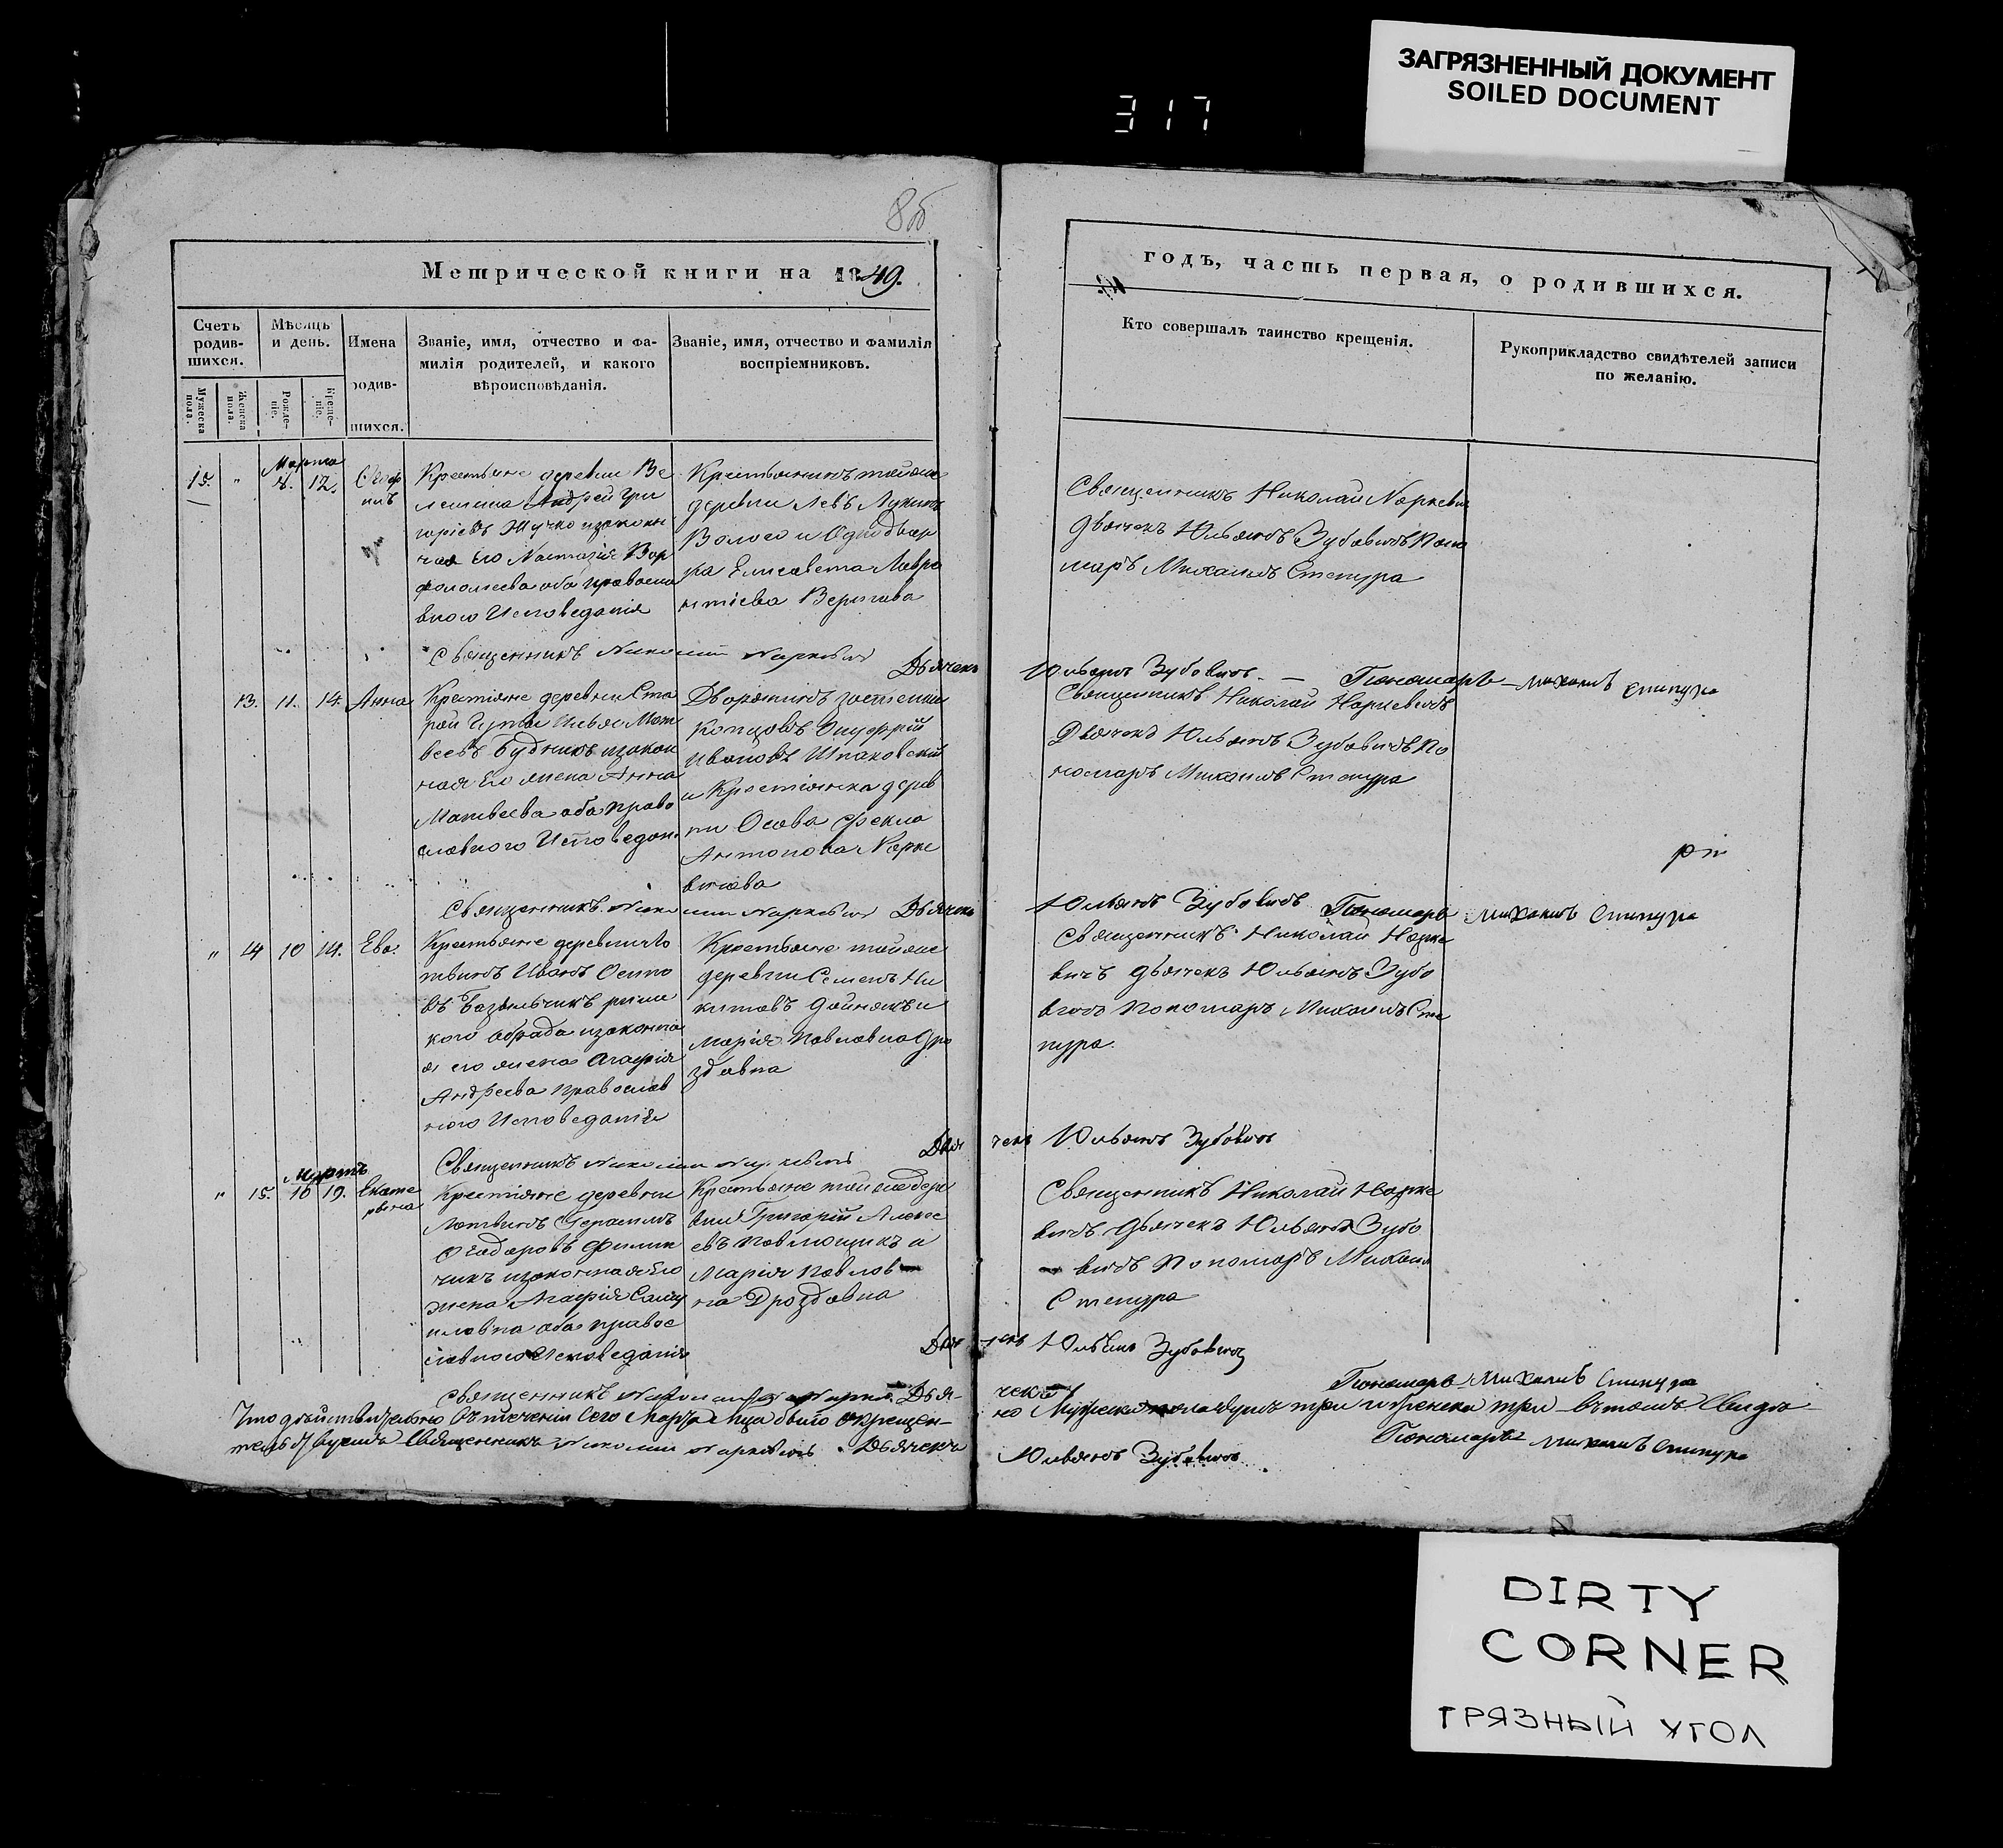 ЗАГРЯЗНЕННЫЙ ДОКУМЕНТ
SOILED DOCUMENT
317
Метрической книги на 1849.
годъ, часть первая, о родившихся.
Счетъ родив-шихся.
Мужеска пола.
Женска пола.
Мѣсяцъ и день.
Рожде-ніе.
Креще-ніе.
Имена родив-шихся.
Званіе, имя, отчество и фа-
милія родителей, и какого
вѣроисповѣданія.
Званіе, имя, отчество и фамилія
воспріемниковъ.
Кто совершалъ таинство крещенія.
Рукоприкладство свидѣтелей записи
по желанію.
Марта
15. " 8. 12.
Крестьяне деревни Ве
Андрей Гри
горіевъ Жучко изакон
ная Его Настазія Вар
фоломеева оба правосла
вного Исповеданія
Крестьянинъ тойже
деревни Левъ Лукинъ
Волосо и Однодвор
ка Елисавета Лавре
нтіева
Священникъ Николай Наркевич
дьячекъ Юльянъ Зубовичъ Поно
маръ Михаилъ Степура
Священникъ Николай Наркевичъ Дьячекъ Юльянъ Зубовичъ — Пономаръ Михаилъ Степура
13. 11. 14. Анна
Крестіяне деревни Ста
рой Гуты Илья Мат
веевъ Будникъ изакон
ная Его жена Анна
Матвеева оба право
славного Исповедан.
Дворянинъ застенка
Копцовъ Онуфрій
Ивановъ Шпаковскій
и Крестіянка дерев
ни Осова Фекла
Антонова Нарке
вичова
Священникъ Николай Наркевичъ
Дьячекъ Юльянъ Зубовичъ По
номаръ Михаилъ Степура
Священникъ Николай Наркевичъ Дьячекъ Юльянъ Зубовичъ Пономаръ Михаилъ Степура
" 14 10 14. Ева.
Крестьяне деревни Ло
твичъ Иванъ Осипо
въ Базыльчикъ римс
кого обрада изаконна
я его жена Агафія
Андреева Православ
ного Исповеданія
Крестьяне тойже
деревни Семенъ Ни
китовъ Дойнякъ и
Марія Павловна Дро
здовна
Священникъ Николай Нарке
вичъ дьячекъ Юльянъ Зубо
вичъ Пономаръ Михаилъ Сте
пура.
Священникъ Николай Наркевичъ Дьячекъ Юльянъ Зубовичъ
Мартъ
" 15. 16 19. Екате
рина
Крестіяне деревни
Лотвичъ Герасимъ
Феодоровъ Филип
чикъ изаконная Его
жена Агафія Саму
иловна оба правос
лавного Исповеданія
Крестьяне тойже дере
вни Григорій Алексе
евъ Павлющикъ и
Марія Павлов
на Дроздовна
Священникъ Николай Нарке
вичъ дьячекъ Юльянъ Зубо
вичъ Пономаръ Михаил
Степура
Дьячекъ Юльянъ Зубовичъ
Священникъ Пономаръ Михаилъ Степура
Что действительно втеченіи сего Марта Мца было окрещен-
но Мужеска пола душъ три и женска три втомъ свиде
тельствуемъ Священникъ Николай Наркевичъ Дьячекъ Юльянъ Зубовичъ Пономаръ Михаилъ Степура
DIRTY
CORNER
ГРЯЗНЫЙ УГОЛ